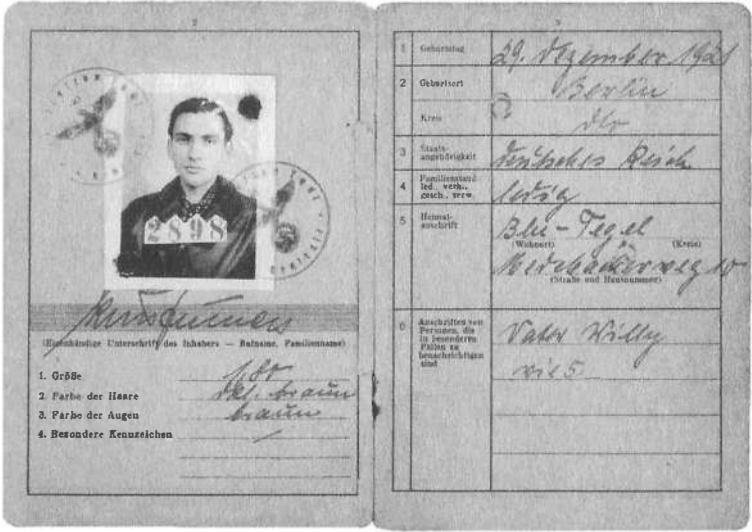 2
2898
(Eigenhändige Unterschrift des Inhabers — Rufname, Familienname)
1. Größe 1,80
2. Farbe der Haare dkl. braun
3. Farbe der Augen braun
4. Besondere Kennzeichen /
3
1 Geburtstag 29. Dezember 1921
2 Geburtsort Berlin
Kreis dto
3 Staats-
angehörigkeit deutsches Reich
4 Familienstand
led., verh.,
gesch., verw. ledig
5 Heimat-
anschrift Bln - Tegel
(Wohnort) (Kreis)
weg 10
(Straße und Hausnummer)
6 Anschriften von
Personen, die
in besonderen
Fällen zu
benachrichtigen
sind
Vater Willy
wie 5